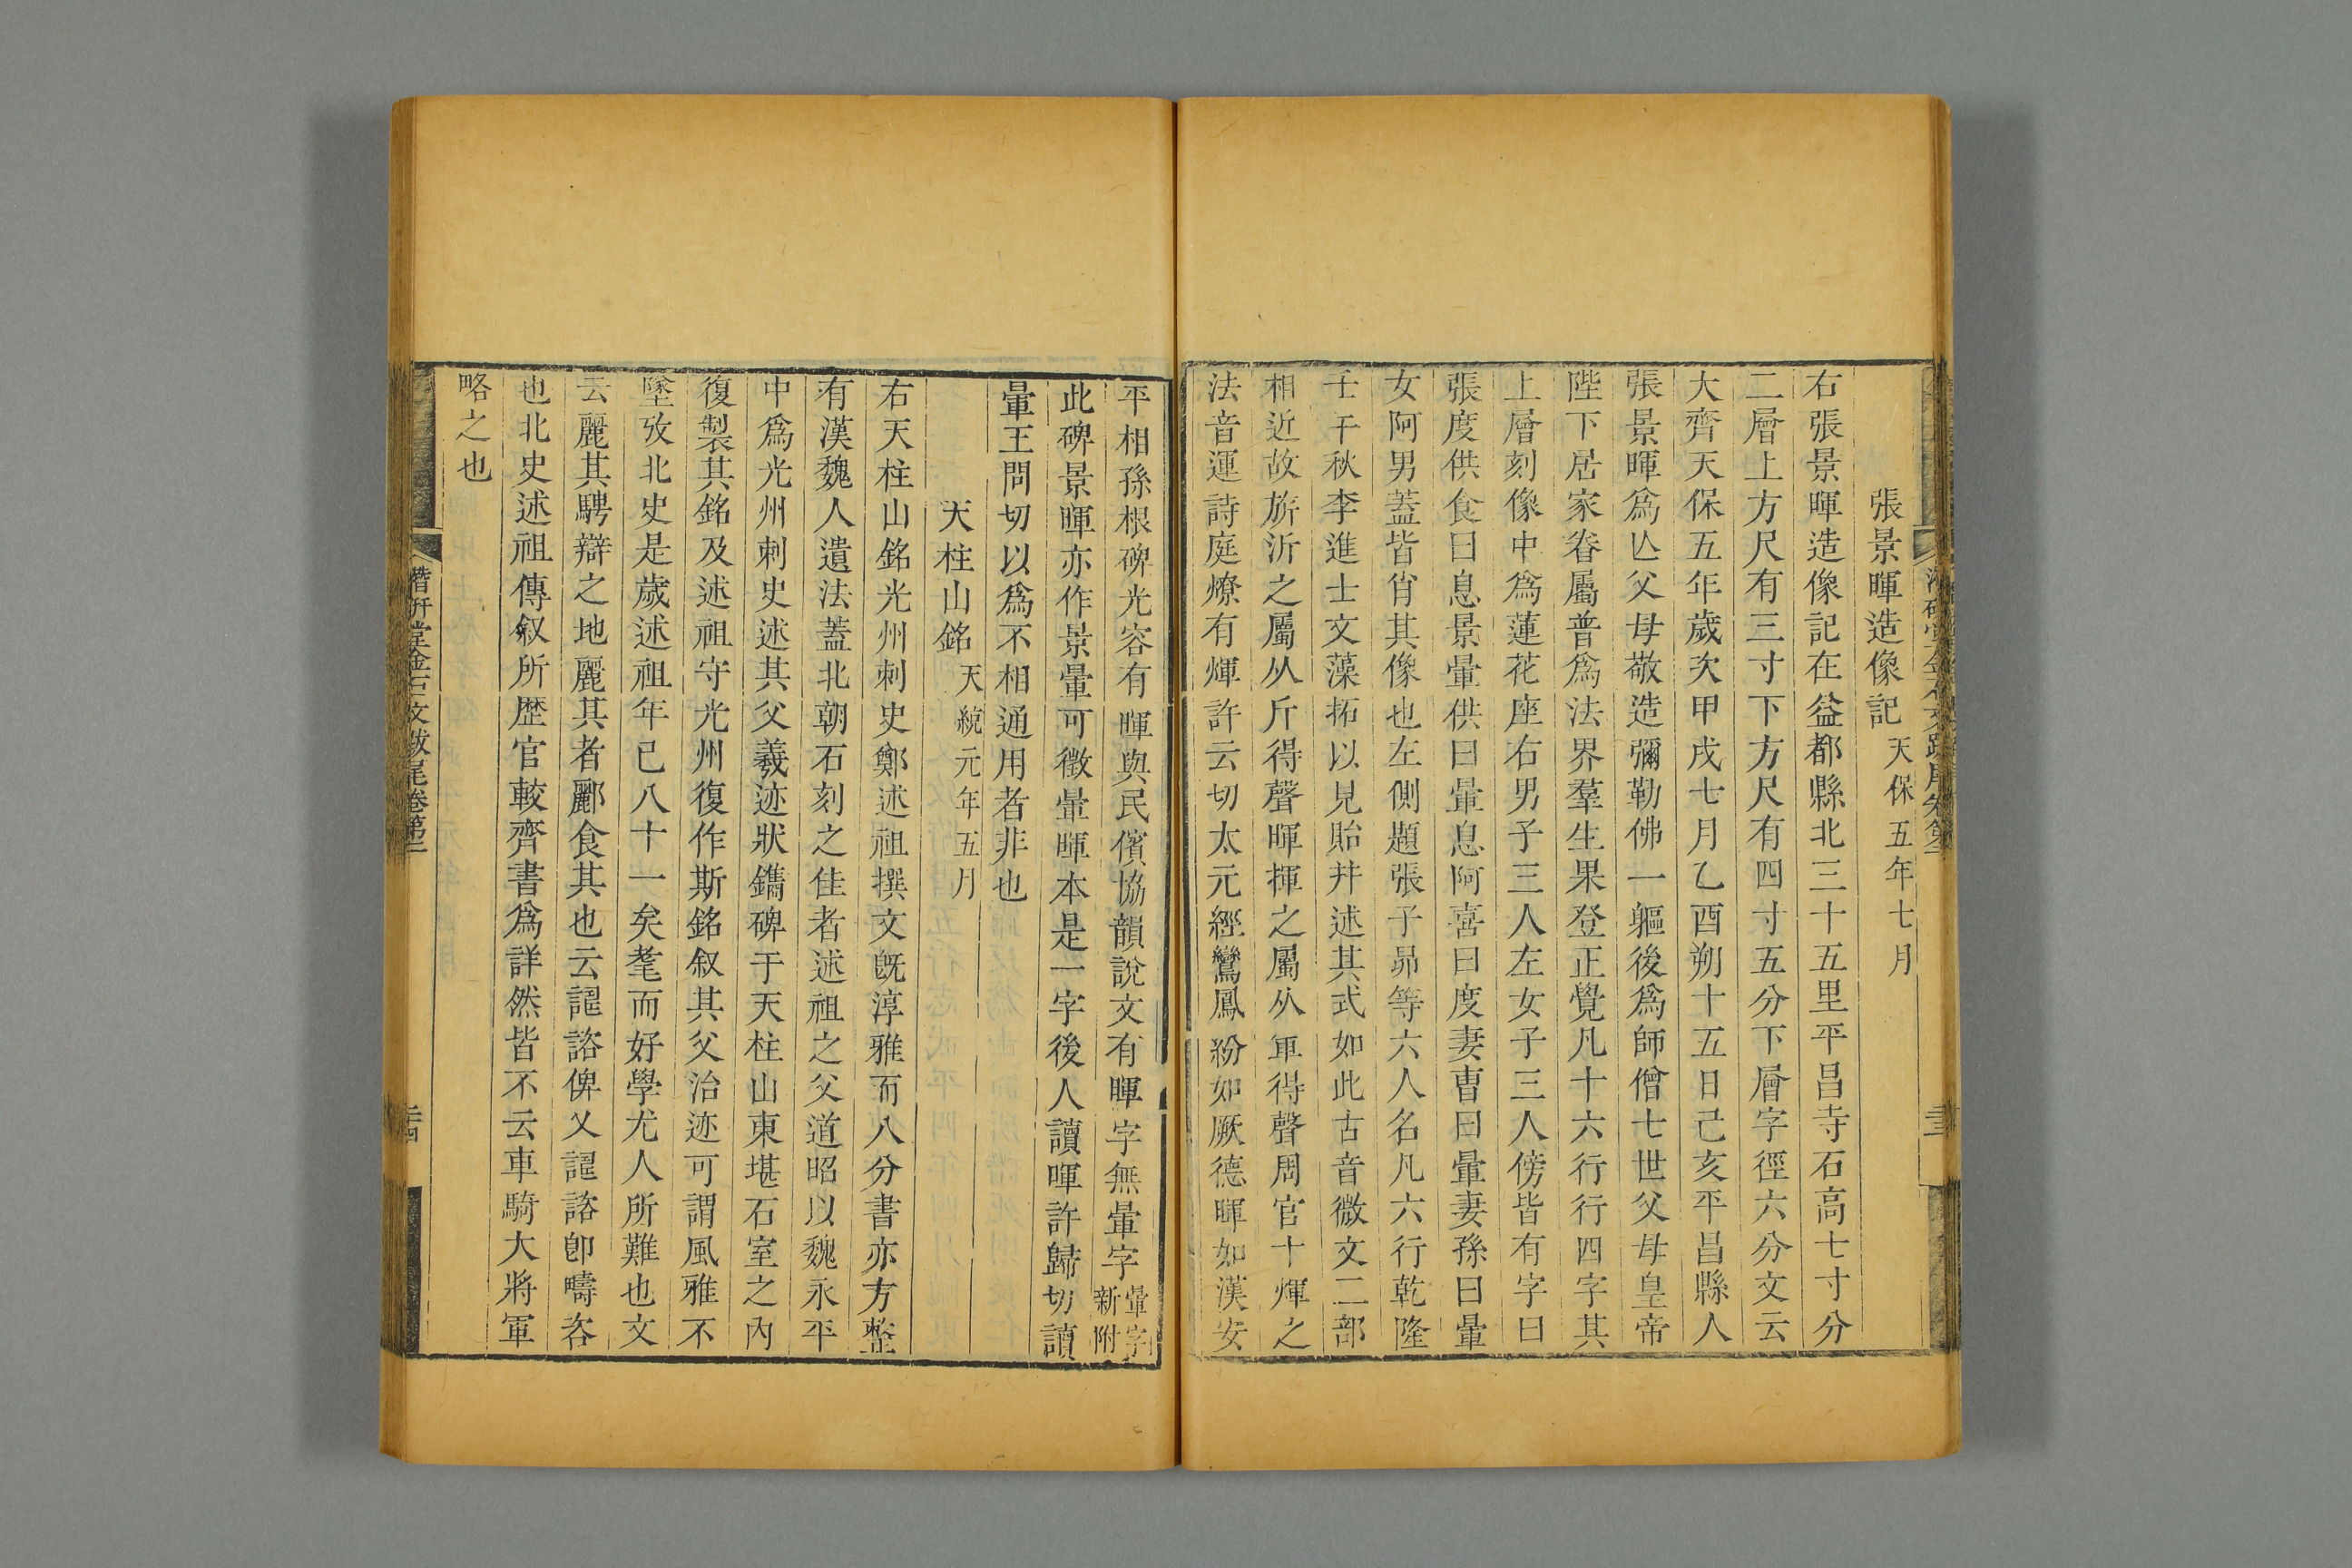 張景暉造像記天保五年七月
右張景暉造像記在益都縣北三十五里平昌寺石高七寸分
二層上方尺有三寸下方尺有四寸五分下層字徑六分文云
大齊天保五年歲次甲戌七月乙酉朔十五日己亥平昌縣人
張景暉爲亾父母敬造彌勒佛一軀後爲師僧七世父母皇帝
陛下居家眷屬普爲法界羣生果登正覺凡十六行行四字其
上層刻像中爲蓮花座右男子三人左女子三人傍皆有字曰
張度供食曰息景暈供曰暈息阿喜曰度妻曺曰暈妻孫曰暈
女阿男蓋皆肖其像也左側題張子昻等六人名凡六行乾隆
壬子秋李進士文藻拓以見貽幷述其式如此古音微文二部
相近故旂沂之屬从斤得聲暉揮之屬从軍得聲周官十煇之
法音運詩庭燎有煇許云切太元經鸞鳳紛如厥德暉如漢安
平相孫根碑光容有暉與民儐協韻說文有暉字無暈字暈字新附
此碑景暉亦作景暈可徵暈暉本是一字後人讀暉許歸切讀
暈王問切以爲不相通用者非也
天柱山銘天統元年五月
右天柱山銘光州刺史鄭述祖撰文旣淳雅而八分書亦方整
有漢魏人遺法蓋北朝石刻之佳者述祖之父道昭以魏永平
中爲光州刺史述其父羲迹狀鐫碑于天柱山東堪石室之內
復製其銘及述祖守光州復作斯銘叙其父治迹可謂風雅不
墜攷北史是歲述祖年已八十一矣耄而好學尤人所難也文
云麗其騁辯之地麗其者酈食其也云諨諮俾乂諨諮卽疇咨
也北史述祖傳叙所歷官較齊書爲詳然皆不云車騎大將軍
略之也
潛研堂金石文跋尾卷第三